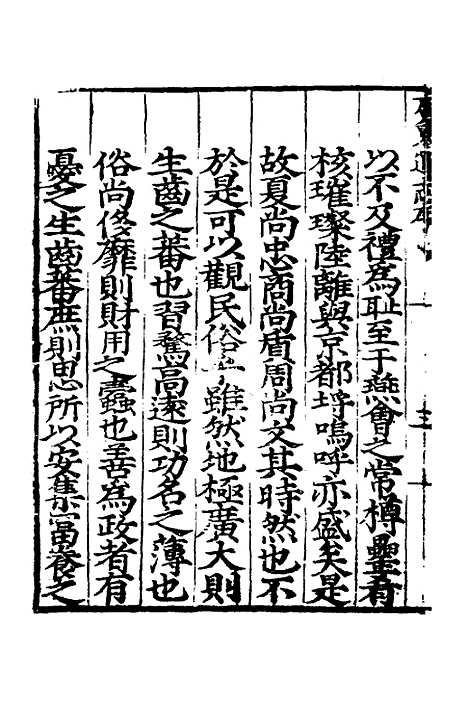 以不及禮為恥至于燕會之常樽罍肴
核璀璨陸離與京都埒嗚呼亦盛矣是
故夏尚忠商尚質周尚文其時然也不
於是可以觀民俗乎雖然地極廣大則
生齒之蕃也習騖高遠則功名之薄也
俗尚侈靡則財用之蠹也善為政者有
憂之生齒蕃庶則思所以安集富養之